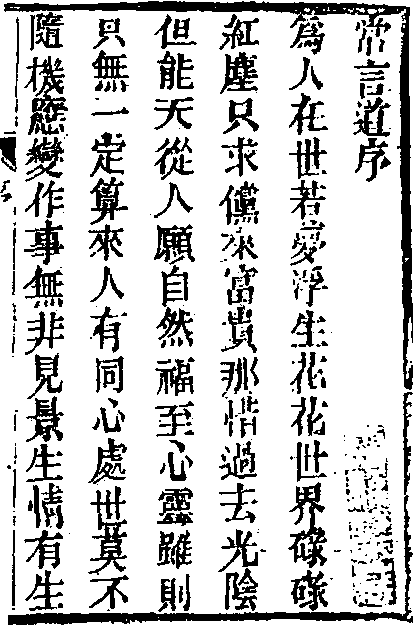 常言道序
為人在世若夢浮生花花世界碌碌
紅塵只求儻來富貴那惜過去光陰
但能天從人願自然福至心靈雖則
只無一定算來人有同心處世莫不
隨機應變作事無非見景生情有生